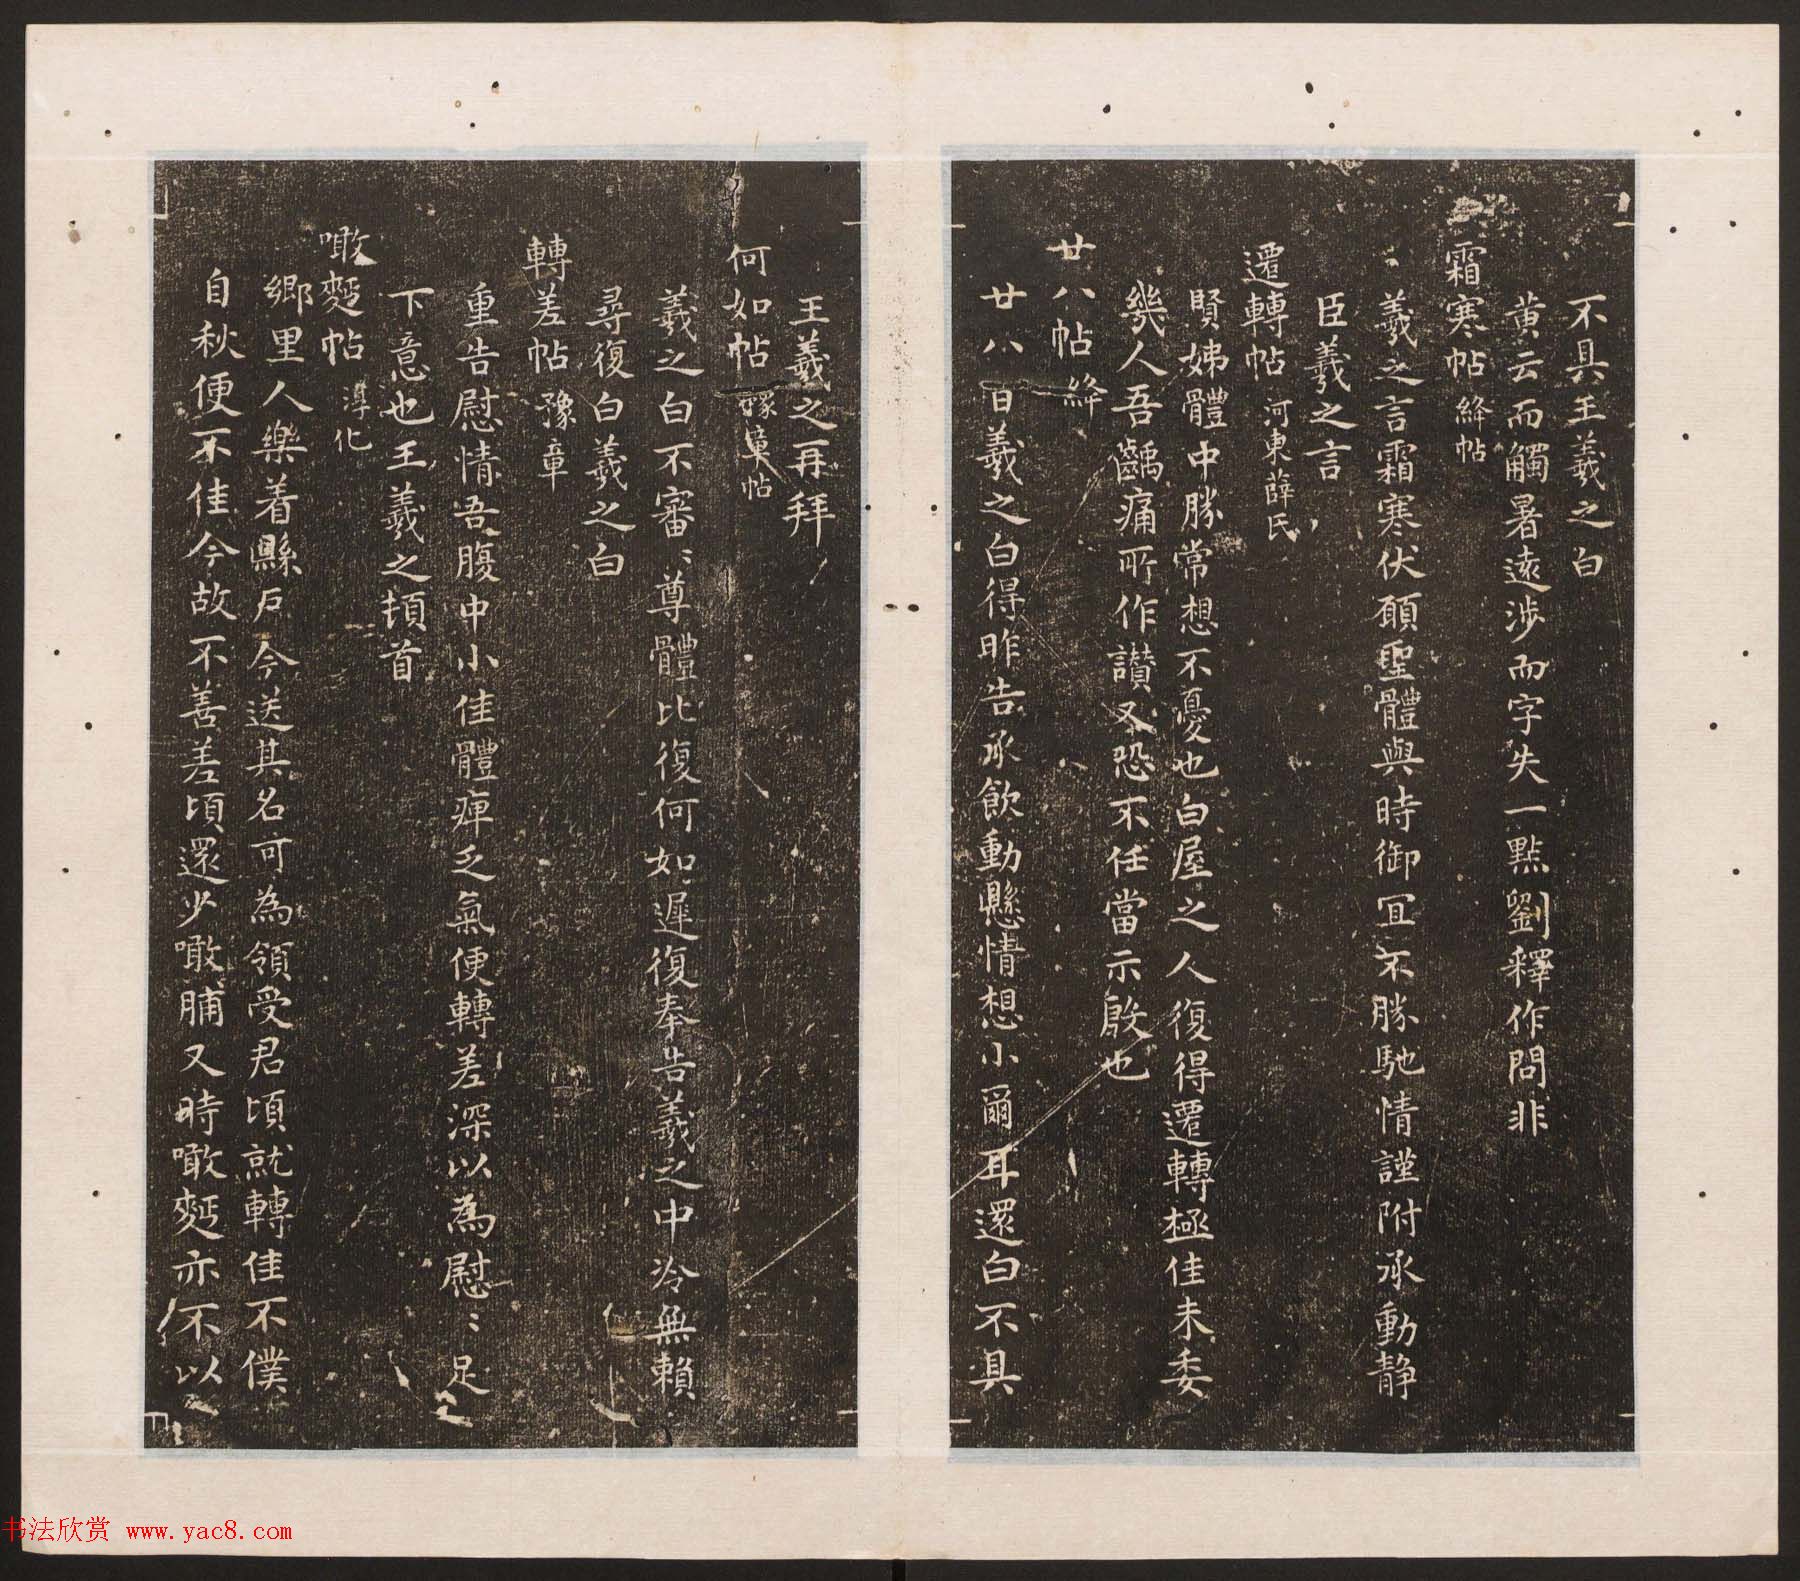 不具王羲之白
黄云而觸暑遠涉而字失一點劉釋作問非
霜寒帖 絳帖
羲之言霜寒伏願聖體與時御宜不勝馳情謹附承動静
臣羲之言
遷轉帖 河東薛氏
賢姊體中勝常想不憂也白屋之人復得遷轉極佳未委
幾人吾齲痛所作讃又恐不任當示殷也
廿八帖 絳
廿八日羲之白得昨告承飲動懸情想小爾耳還白不具
王羲之再拜
何如帖 豫章帖
羲之白不審〻尊體比復何如遲復奉告羲之中冷無賴
尋復白羲之白
轉差帖 豫章
重告慰情吾腹中小佳體痺乏氣便轉差深以為慰〻足
下意也王羲之頓首
噉麫帖 淳化
鄉里人樂着縣戶今送其名可為領受君頃就轉佳不僕
自秋便不佳今故不善差頃還少噉脯又時噉麫亦不以
书法欣赏 www.yac8.com